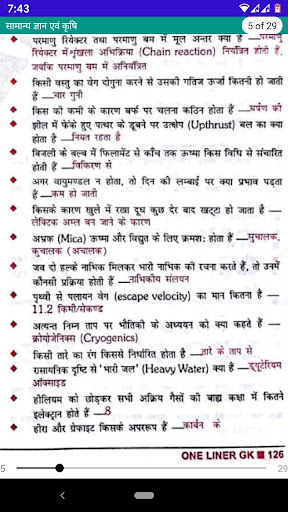 7:43
सामान्य ज्ञान एवं कृषि
5 of 29
परमाणु रियेक्टर तथा परमाणु बम में मूल अन्तर क्या है —परमाणु
रियेक्टर में शृंखला अभिक्रिया (Chain reaction) नियंत्रित होती हैं,
जबकि परमाणु बम में अनियंत्रित
किसी वस्तु का वेग दोगुना करने से उसकी गतिज ऊर्जा कितनी हो जाती
हैं —चार गुनी
किस की कमी के कारण बर्फ पर चलना कठिन होता हैं —घर्षण की
झील में फेंके हुए पत्थर के डूबने पर उत्क्षेप (Upthrust) बल का क्या
होता है —नियत रहता है
बिजली के बल्ब में फिलामेंट से काँच तक ऊष्मा किस विधि से संचारित
होती हैं —विकिरण से
अगर वायुमण्डल न होता, तो दिन की लम्बाई पर क्या प्रभाव पड़ता
हैं —कम हो जाती
किसके कारण खुले में रखा दूध कुछ देर बाद खट्टा हो जाता है —
लेक्टिक अम्ल बन जाने के कारण
अभ्रक (Mica) ऊष्मा और विद्युत के लिए क्रमश: होता हैं —सुचालक,
कुचालक (अचालक)
जब दो हल्के नाभिक मिलकर भारी नाभिक की रचना करते हैं, तो उनमें
कौनसी प्रक्रिया होती हैं —नाभिकीय संलयन
पृथ्वी से पलायन वेग (escape velocity) का मान कितना है —
11.2 किमी/सेकण्ड
अत्यन्त निम्न ताप पर भौतिकी के अध्ययन को क्या कहते हैं —
क्रायोजेनिक्स (Cryogenics)
किसी तारे का रंग किससे निर्धारित होता है —तारे के ताप से
रासायनिक दृष्टि से 'भारी जल' (Heavy Water) क्या हैं —ड्यूटेरियम
ऑक्साइड
होलियम को छोड़कर सभी अक्रिय गैसों की बाह्य कक्षा में कितने
इलेक्ट्रोन होते हैं —8
हीरा और ग्रेफाइट किसके अपररूप हैं —कार्बन के
ONE LINER GK 126
5
29